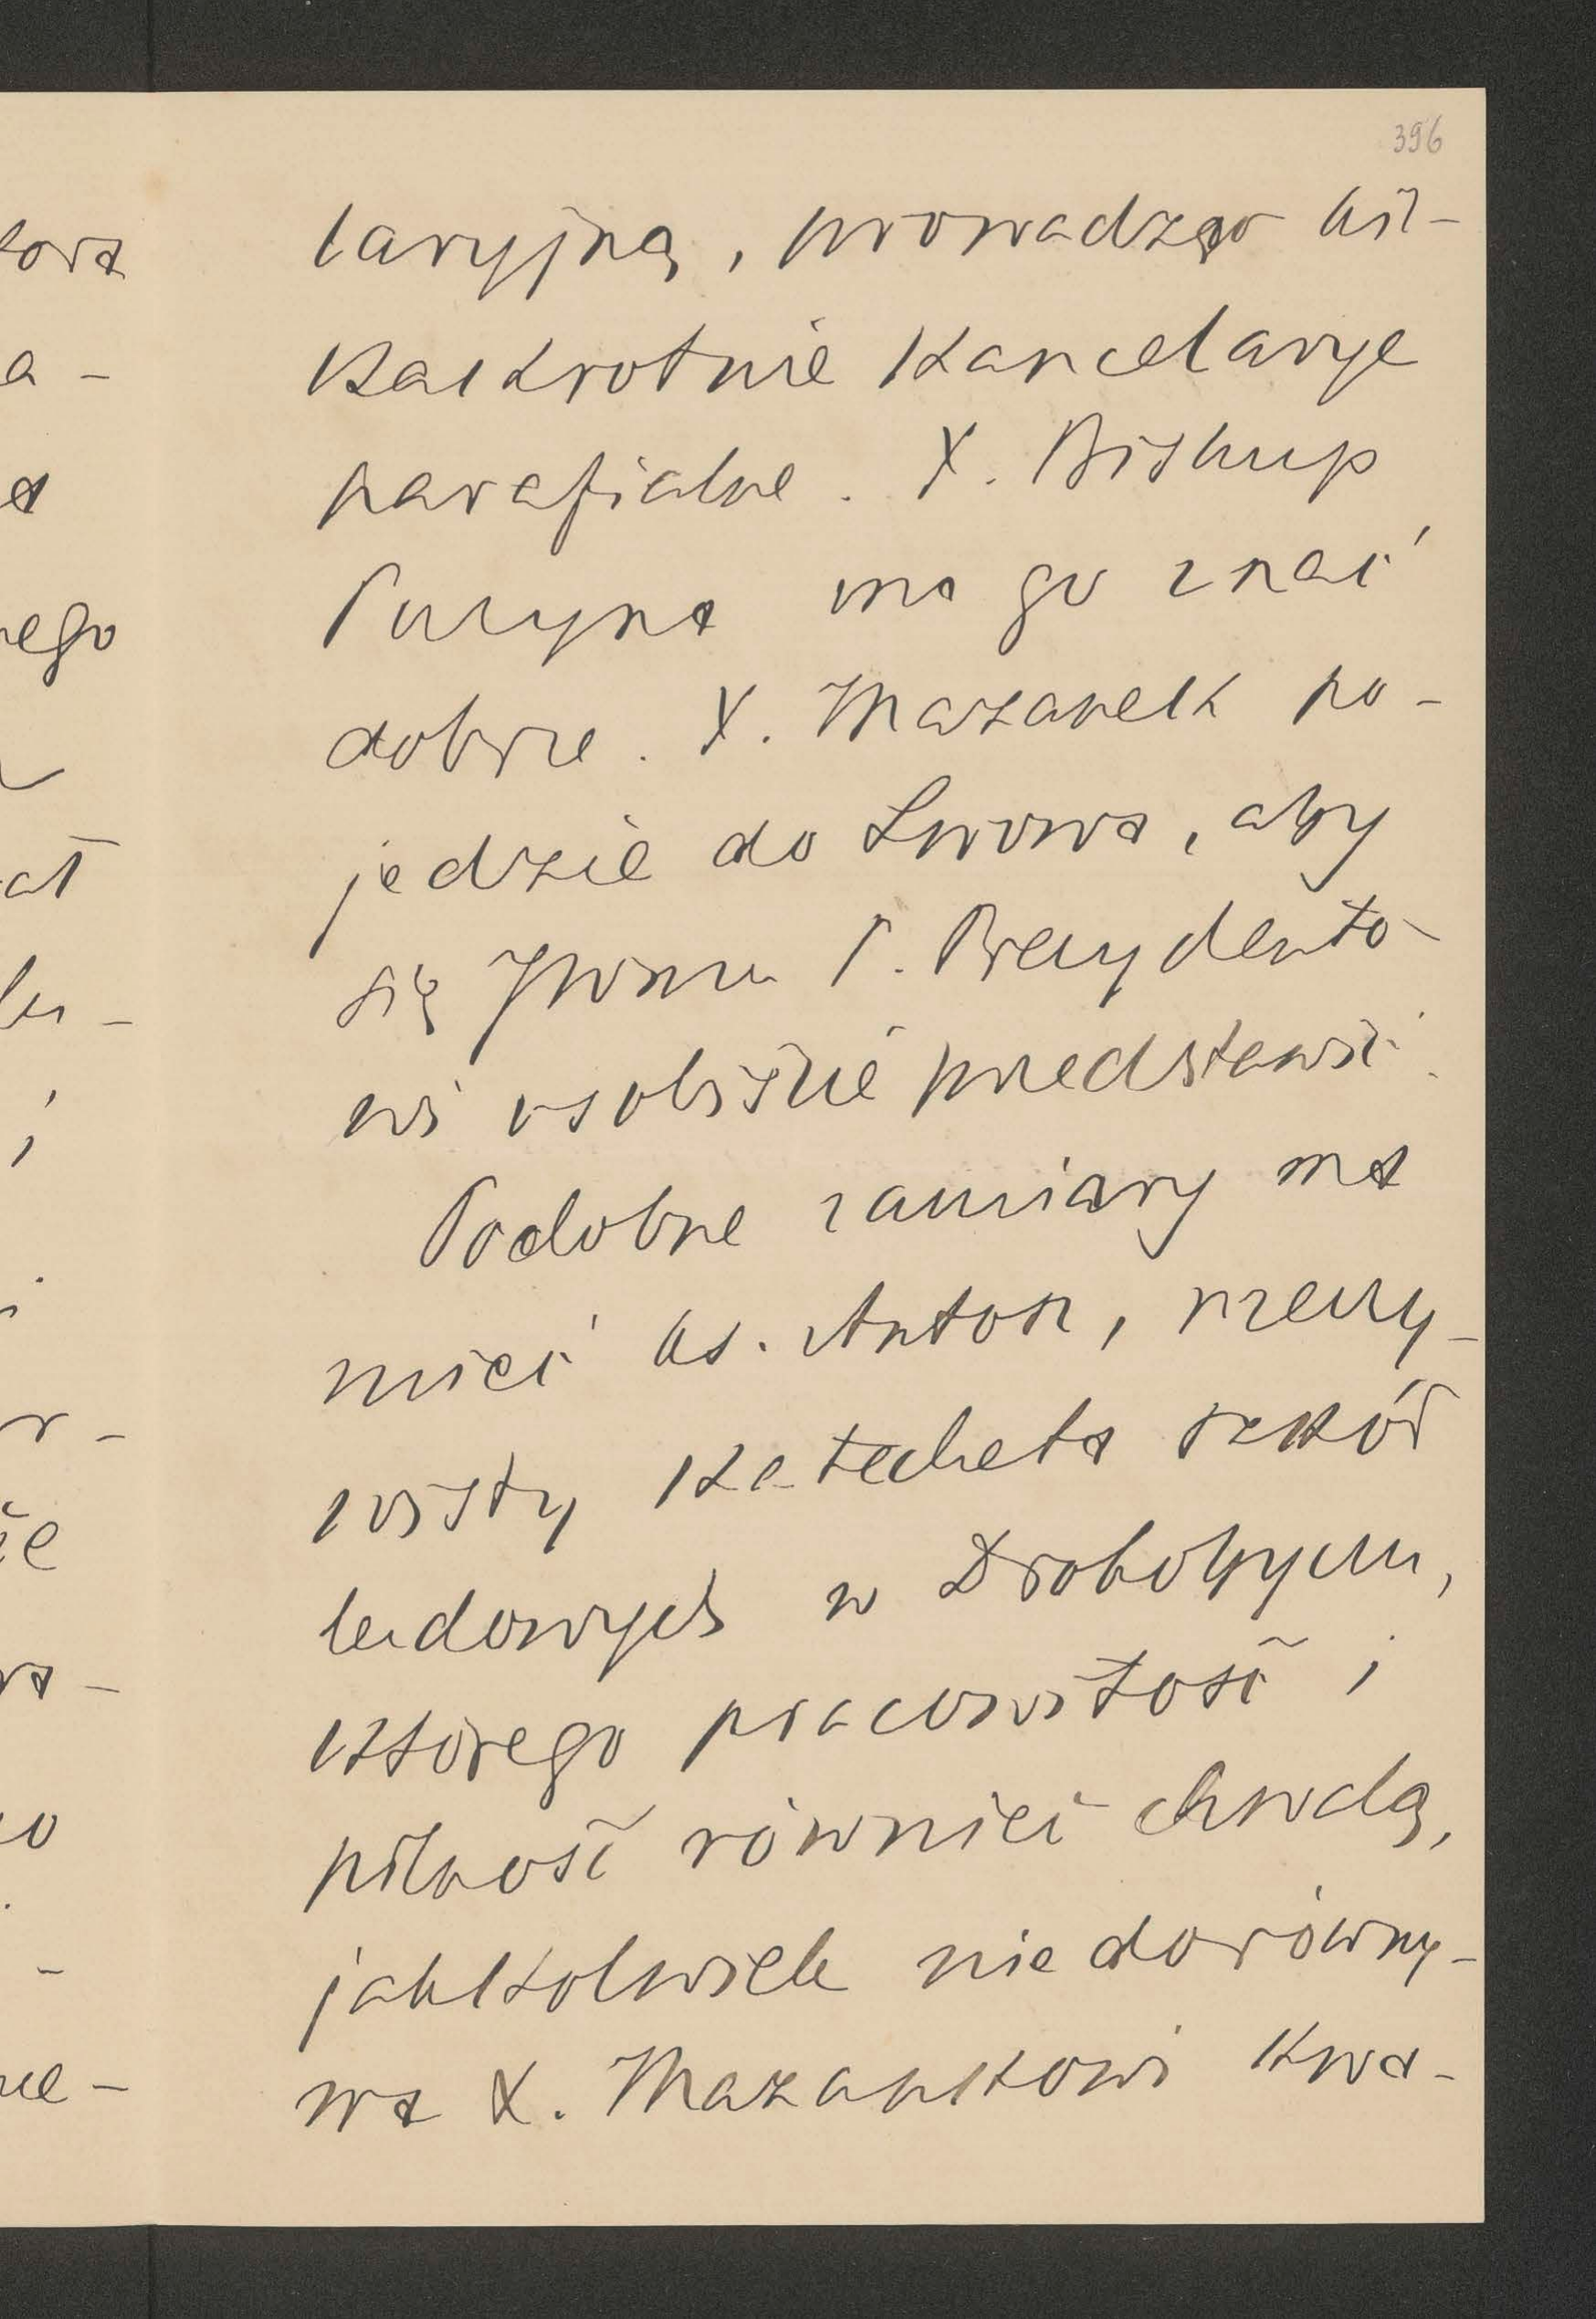 396
laryjną, prowadząc kil-
kakrotnie kancelarye
parafialne. X. Biskup
Puzyna ma go znać
dobrze. X. Mazanek po-
jedzie do Lwowa, aby
się JWmu P. Prezydento-
wi osobiście przedstawić.
Podobne zamiary ma
mieć ks. Anton, rzeczy-
wisty katecheta szkół
ludowych w Drohobyczu,
którego pracowitość i
pilność również chwalą,
jakkolwiek nie dorówny-
wa X. Mazankowi kwa-